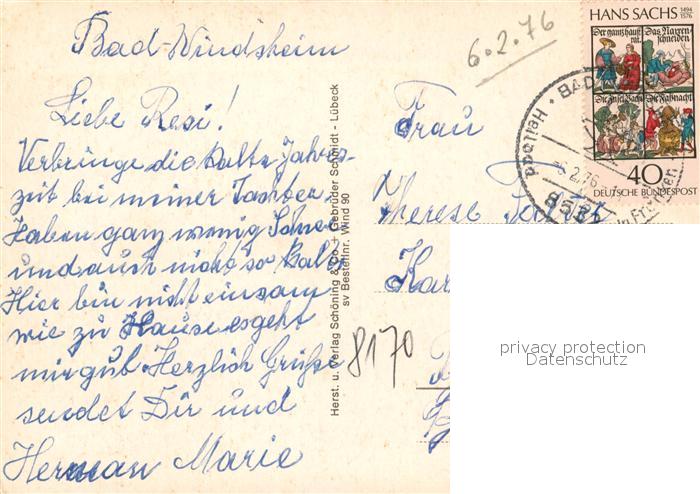 Bad-Windsheim
6.2.76
Liebe Resi!
Verbringe die kalte Jahres-
zeit bei meiner Tochter.
Haben ganz wenig Schnee
und auch nicht so kalt
Hier bin nicht einsam
wie zu Hause es geht
mir gut. Herzlich Grüße
sendet Dir und
Herman Marie
Herst. u. Verlag Schöning & Co. + Gebrüder Schmidt - Lübeck
sv Bestellnr. Wind 90
Frau
Therese
Kar
8170
HANS SACHS 1494 1576
Der gantz hauß rat.
Das Narren schneiden
Die Insel Bachi
Die Faßnacht
40
DEUTSCHE BUNDESPOST
Heilbad · BAD
-6.2.76
8532
privacy protection
Datenschutz